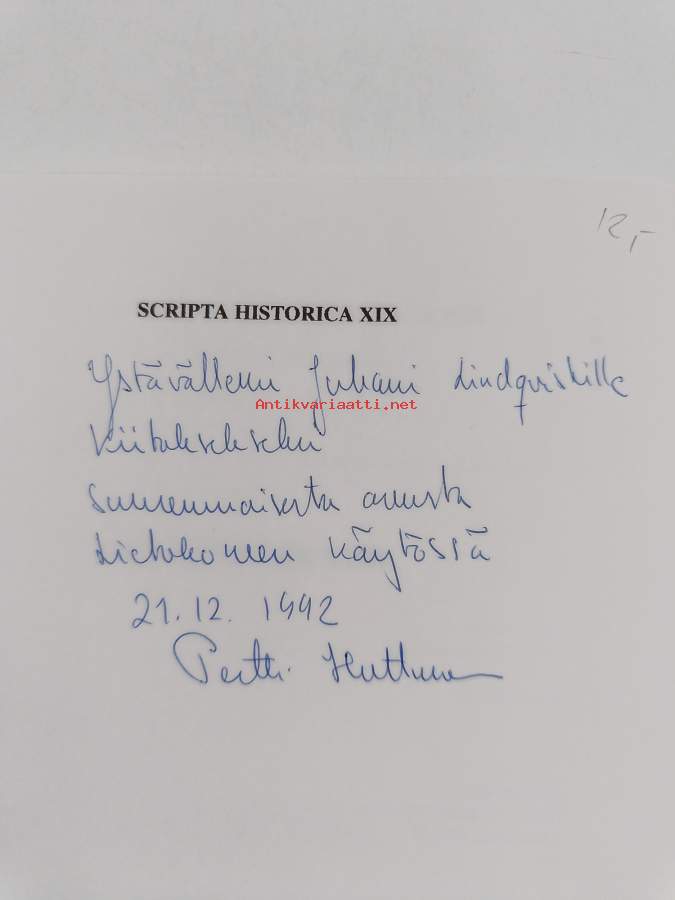 12,-
SCRIPTA HISTORICA XIX
Ystävälleni Juhani Lindqvistille
Antikvariaatti.net
kiitokseksi
suurenmoisesta avusta
tietokoneen käytössä
21.12. 1992
Pertti Huttunen